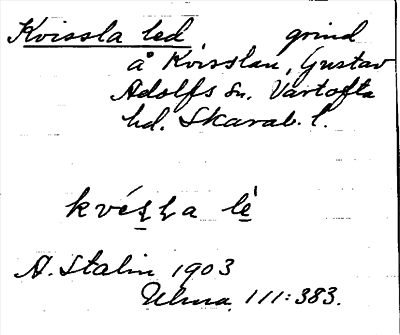 Kvissla led grind
å Kvisslan, Gustav
Adolfs sn. Vartofta
hd. Skarab. l.
kvéʂʂa lè
A. Stalin 1903
Ulma 111:383.